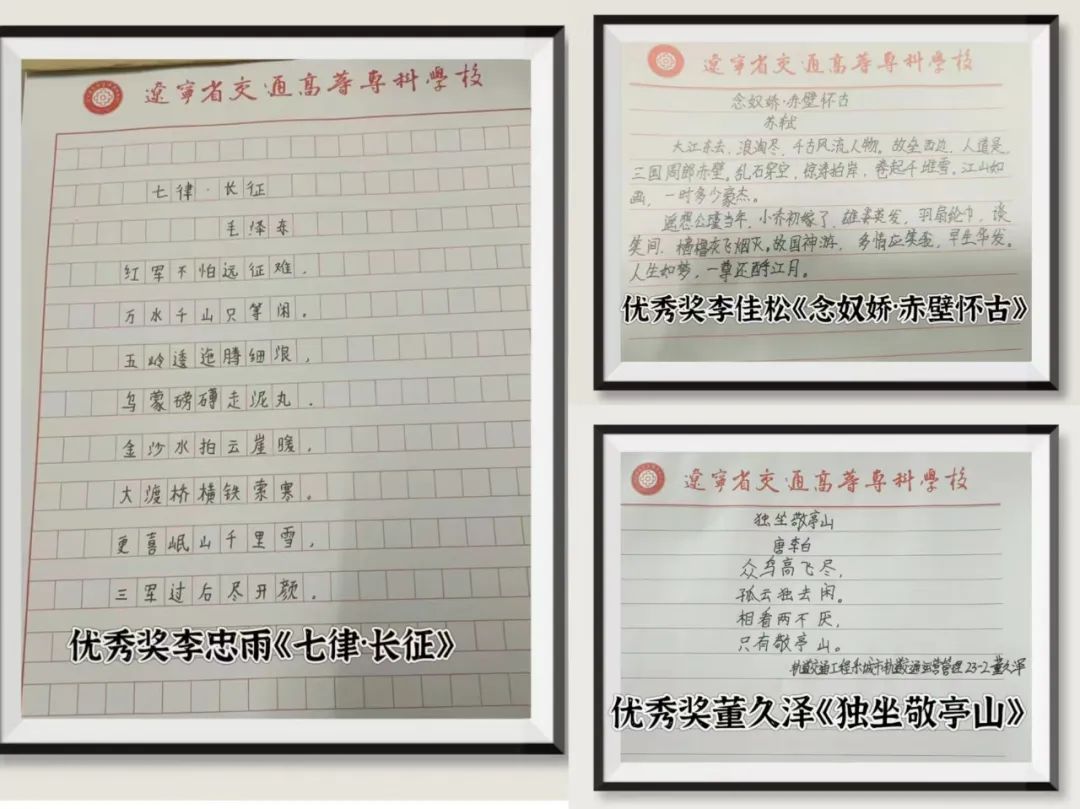 遼寧省交通高等專科學校
七律·长征
毛泽东
红军不怕远征难，
万水千山只等闲。
五岭逶迤腾细浪，
乌蒙磅礴走泥丸．
金沙水拍云崖暖，
大渡桥横铁索寒。
更喜岷山千里雪，
三军过后尽开颜。
优秀奖李忠雨《七律·长征》
遼寧省交通高等專科學校
念奴娇·赤壁怀古
苏轼
大江东去，浪淘尽，千古风流人物。故垒西边，人道是，
三国周郎赤壁。乱石穿空，惊涛拍岸，卷起千堆雪。江山如
画，一时多少豪杰。
遥想公瑾当年，小乔初嫁了，雄姿英发，羽扇纶巾，谈
笑间，樯橹灰飞烟灭。故国神游，多情应笑我，早生华发。
人生如梦，一尊还酹江月。
优秀奖李佳松《念奴娇·赤壁怀古》
遼寧省交通高等專科學校
独坐敬亭山
唐李白
众鸟高飞尽，
孤云独去闲。
相看两不厌，
只有敬亭山。
轨道交通工程系城市轨道交通运营管理23-2董久泽
优秀奖董久泽《独坐敬亭山》